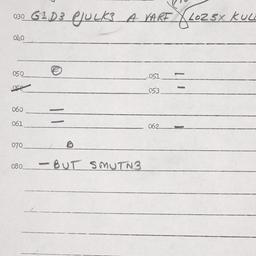 030 G1D3 PJULKS A VARF LOZ5X KULL
040
050 C 051 –
052 053 –
060 –
061 – 062 –
070 B
080 – BUT SMUTN3